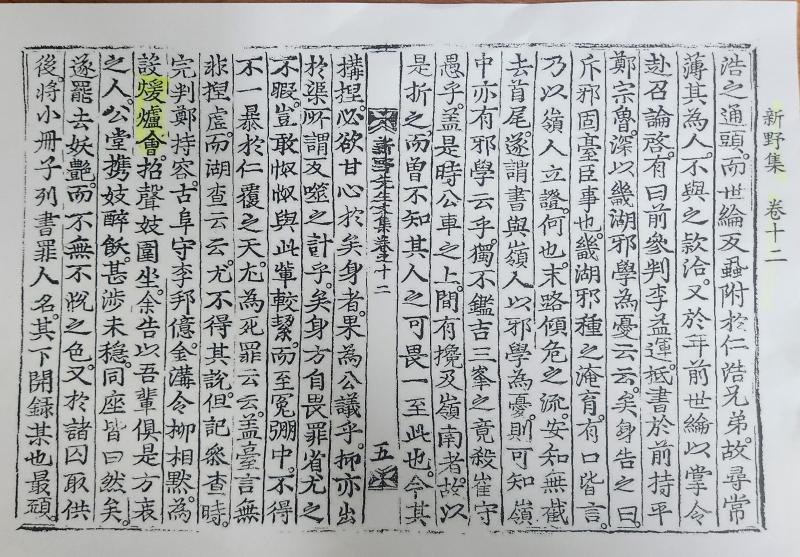 新野集 卷十二
浩之通頭而世綸友蝨附於仁浩兄弟故尋常
薄其為人不與之款洽又於年前世綸以掌令
赴召論啓有曰前參判李益運抵書於前持平
鄭宗魯深以畿湖邪學為憂云云矣身告之曰
斥邪固臺臣事也畿湖邪種之淹育有口皆言
乃以嶺人立證何也末路傾危之流安知無截
去首尾遂謂書與嶺人以邪學為憂則可知嶺
中亦有邪學云乎獨不鑑吉三峯之竟殺崔守
愚乎盖是時公車之上間有攙及嶺南者故以
是折之而曾不知其人之可畏一至此也今其
新野先生文集卷之十二 五
搆捏必欲甘心於矣身者果為公議乎抑亦出
於渠所謂反噬之計乎矣身方自畏罪省尤之
不暇豈敢呶呶與此輩較挈而至冤弸中不得
不一暴於仁覆之天尤為死罪云云盖臺言無
非捏虛而湖查云云尤不得其說但記參查時
完判鄭持容古阜守李邦億金溝令柳相默為
設煖爐會招聲妓圍坐余告以吾輩俱是方衰
之人公堂携妓醉飫甚涉未穩同座皆曰然矣
遂罷去妖艷而不無不悅之色又於諸囚取供
後將小冊子列書罪人名其下開錄某也最頑